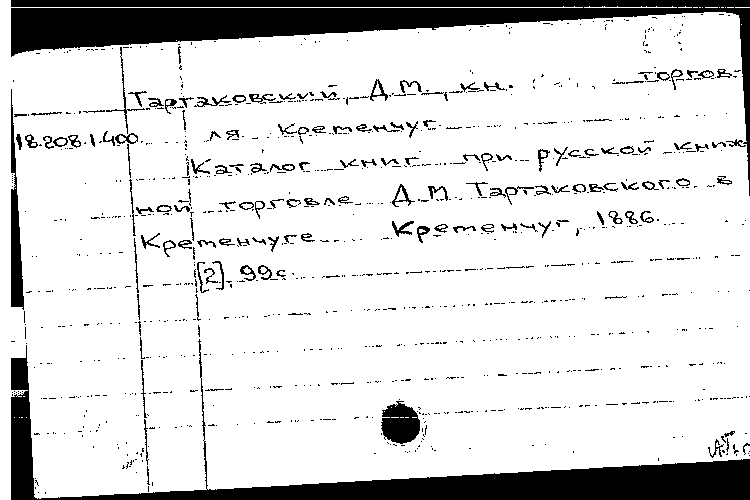 Тартаковский, Д.М., кн. торгов-
18.208.1.400 ля Кременчуг
Каталог книг при русской книж-
ной торговле Д.М. Тартаковского в
Кременчуге Кременчуг, 1886.
[2], 99с.